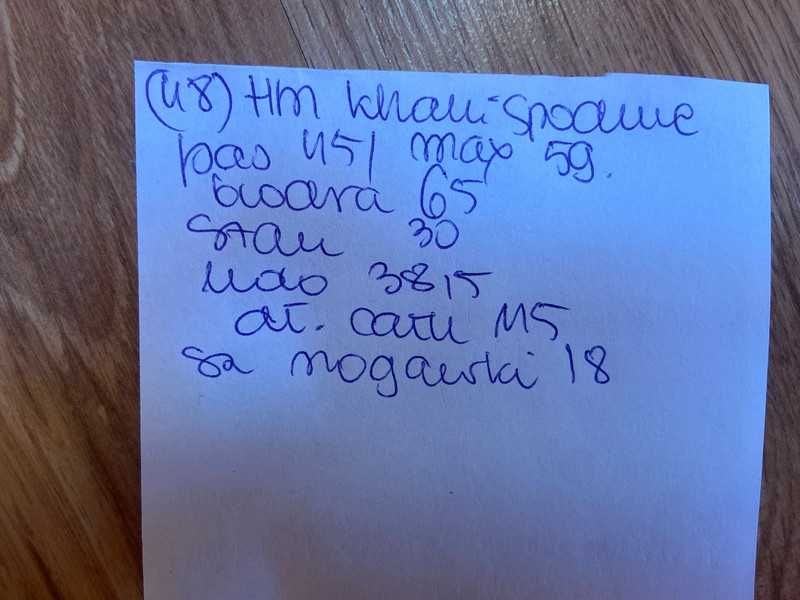 (48) HM khaki spodnie
pas 45/ max 59.
biodra 65
stan 30
udo 38,5
dł. całk 115
sz nogawki 18